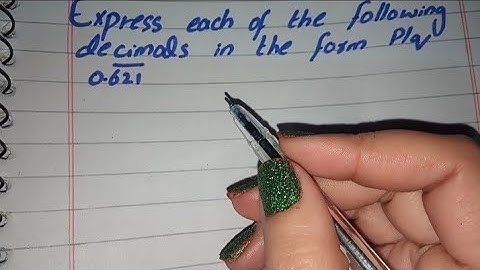 Express each of the following
decimals in the form P/q
0.6̅2̅1̅